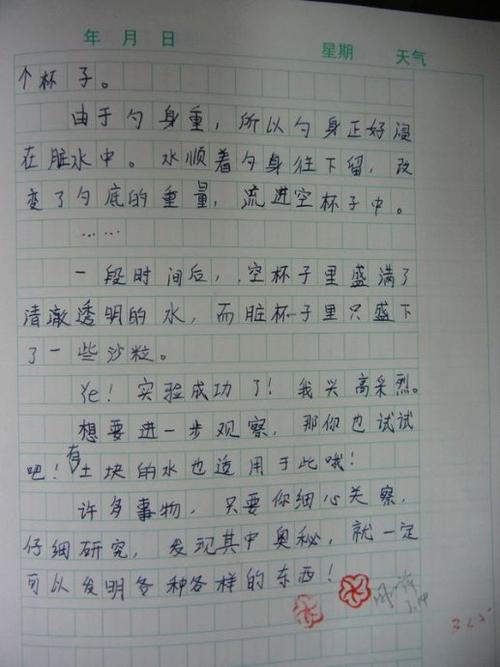 年 月 日 星期 天气
个杯子。
由于勺身重，所以勺身正好浸
在脏水中。水顺着勺身往下留，改
变了勺底的重量，流进空杯子中。
……
一段时间后，空杯子里盛满了
清澈透明的水，而脏杯子里只盛下
了一些沙粒。
Ye！实验成功了！我兴高采烈。
想要进一步观察，那你也试试
吧！有土块的水也适用于此哦！
许多事物，只要你细心关察，
仔细研究，发现其中奥秘，就一定
可以发明各种各样的东西！